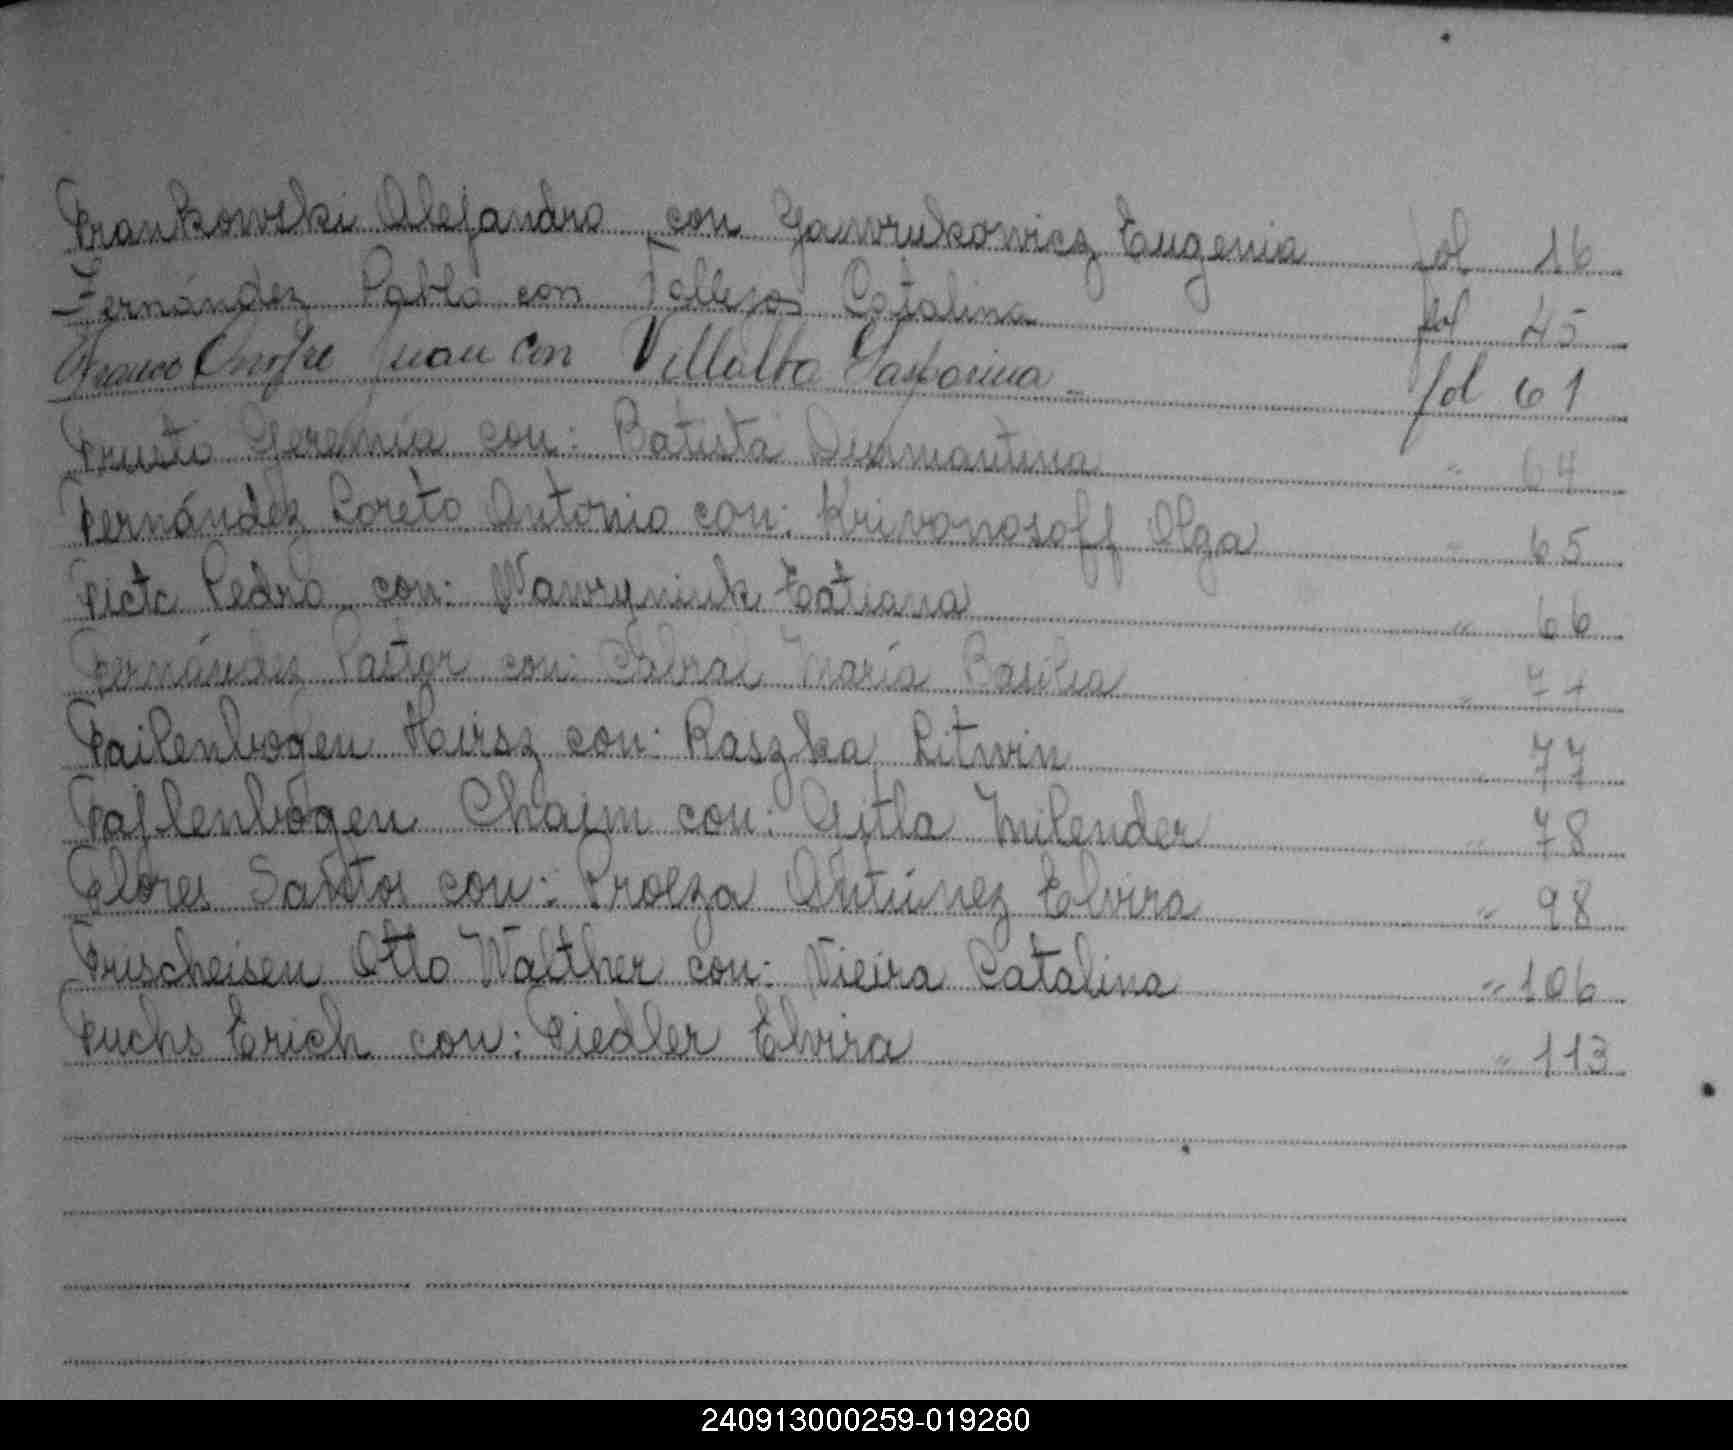 Frankowski Alejandro con Yawrukowicz Eugenia fol 16
Fernández Pablo con Tallejos Catalina fol 45
Franco Onofre Juan con Villalba Gasparina fol 61
Frusto Geremía con: Batista Diamantina " 64
Fernández Loreto Antonio con: Krivonosoff Olga " 65
Fictc Pedro con: Wawryniuk Tatiana " 66
Fernández Pastor con: Cabral María Basilia " 74
Failenbogen Hirsz con: Raszka Litwin " 77
Fajlenbogen Chaim con: Gitla Milender " 78
Flores Santos con: Proeza Antúnez Elvira " 98
Frischeisen Otto Walther con: Vieira Catalina " 106
Fuchs Erich con: Fiedler Elvira " 113
240913000259-019280